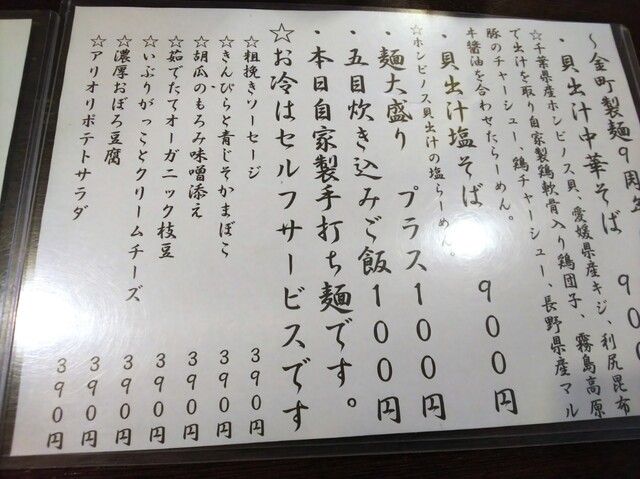 ～金町製麺9周年
・貝出汁中華そば　９００
☆千葉県産ホンビノス貝、愛媛県産キジ、利尻昆布
で出汁を取り自家製鶏軟骨入り鶏団子、霧島高原
豚のチャーシュー、鶏チャーシュー、長野県産マル
本醤油を合わせたらーめん。
・貝出汁塩そば　９００円
☆ホンビノス貝出汁の塩らーめん。
・麺大盛り　プラス１００円
・五目炊き込みご飯１００円
・本日自家製手打ち麺です。
☆お冷はセルフサービスです
☆粗挽きソーセージ　３９０円
☆きんぴらと青じそかまぼこ　３９０円
☆胡瓜のもろみ味噌添え　３９０円
☆茹でたてオーガニック枝豆　３９０円
☆いぶりがっことクリームチーズ　３９０円
☆濃厚おぼろ豆腐　３９０円
☆アリオリポテトサラダ　３９０円